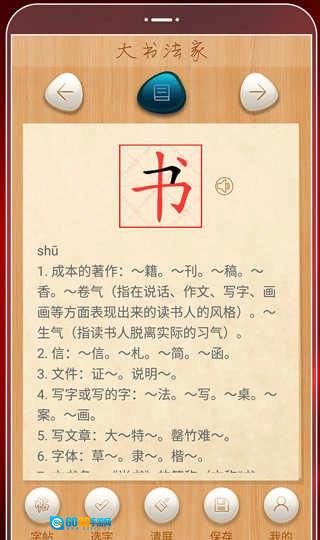 大书法家
书
shū
1. 成本的著作：～籍。～刊。～稿。～
香。～卷气（指在说话、作文、写字、画
画等方面表现出来的读书人的风格）。～
生气（指读书人脱离实际的习气）。
2. 信：～信。～札。～简。～函。
3. 文件：证～。说明～。
4. 写字或写的字：～法。～写。～桌。～
案。～画。
5. 写文章：大～特～。罄竹难～。
6. 字体：草～。隶～。楷～。
字帖 选字 清屏 保存 我的